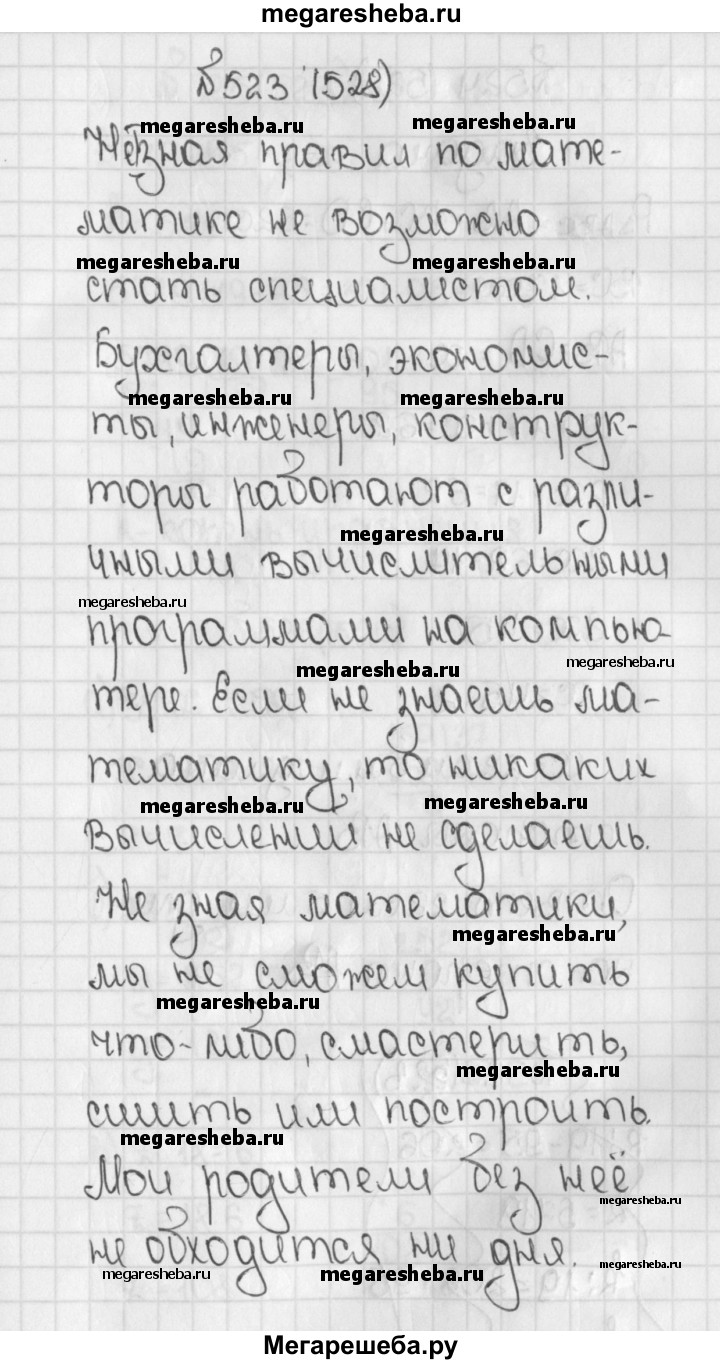 megaresheba.ru
№523 (528)
megaresheba.ru megaresheba.ru
Не зная правил по мате-
матике не возможно
megaresheba.ru megaresheba.ru
стать специалистом.
Бухгалтеры, экономис-
megaresheba.ru megaresheba.ru
ты, инженеры, конструк-
торы работают с разли-
megaresheba.ru
чными вычислительными
megaresheba.ru
программами на компью-
megaresheba.ru megaresheba.ru
тере. Если не знаешь ма-
тематику, то никаких
megaresheba.ru megaresheba.ru
вычислений не сделаешь.
Не зная математики,
megaresheba.ru
мы не сможем купить
megaresheba.ru
что-либо, смастерить,
megaresheba.ru
сшить или построить.
megaresheba.ru
Мои родители без неё
megaresheba.ru
не обходится ни дня.
megaresheba.ru megaresheba.ru megaresheba.ru
Мегарешеба.ру